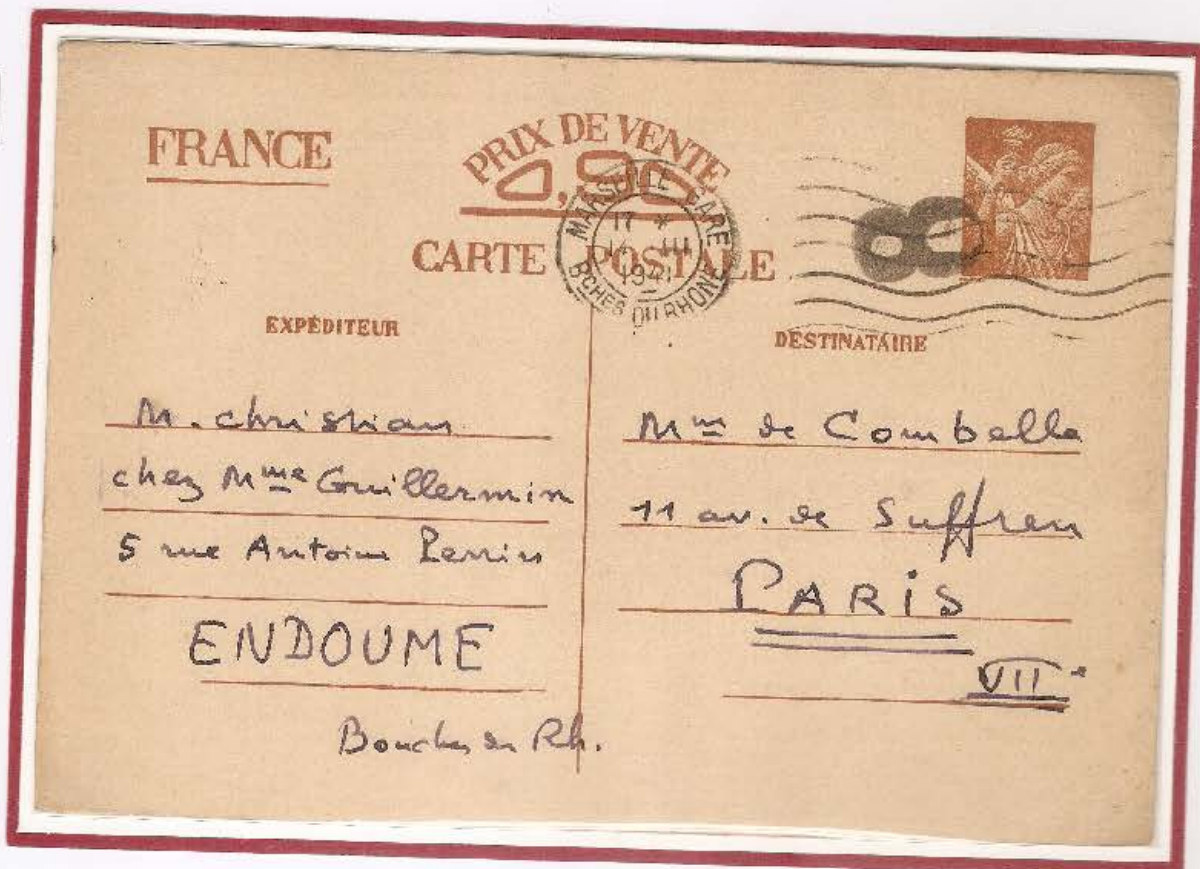 FRANCE
PRIX DE VENTE
0,90
CARTE POSTALE
MARSEILLE GARE
17 *
III
1941
BCHES DU RHONE
EXPÉDITEUR
M. christian
chez Mme Guillermin
5 rue Antoine Perrin
ENDOUME
Bouches du Rh.
DESTINATAIRE
Mme de Combelle
11 av. de Suffren
PARIS
VIIe